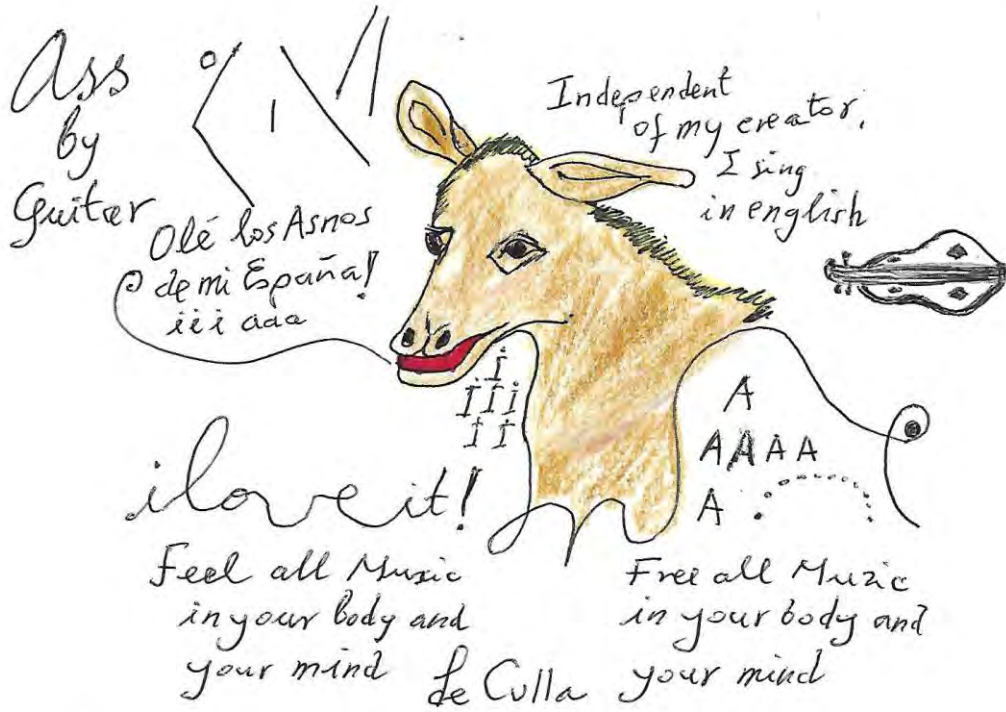 Ass
by
Guiter
Independent
of my creator,
I sing
in english
Olé los Asnos
de mi España!
iii aaa
I
I I i
I I
A
A A A A
A
i love it!
Feel all Music
in your body and
your mind
Free all Muzic
in your body and
your mind
de Culla